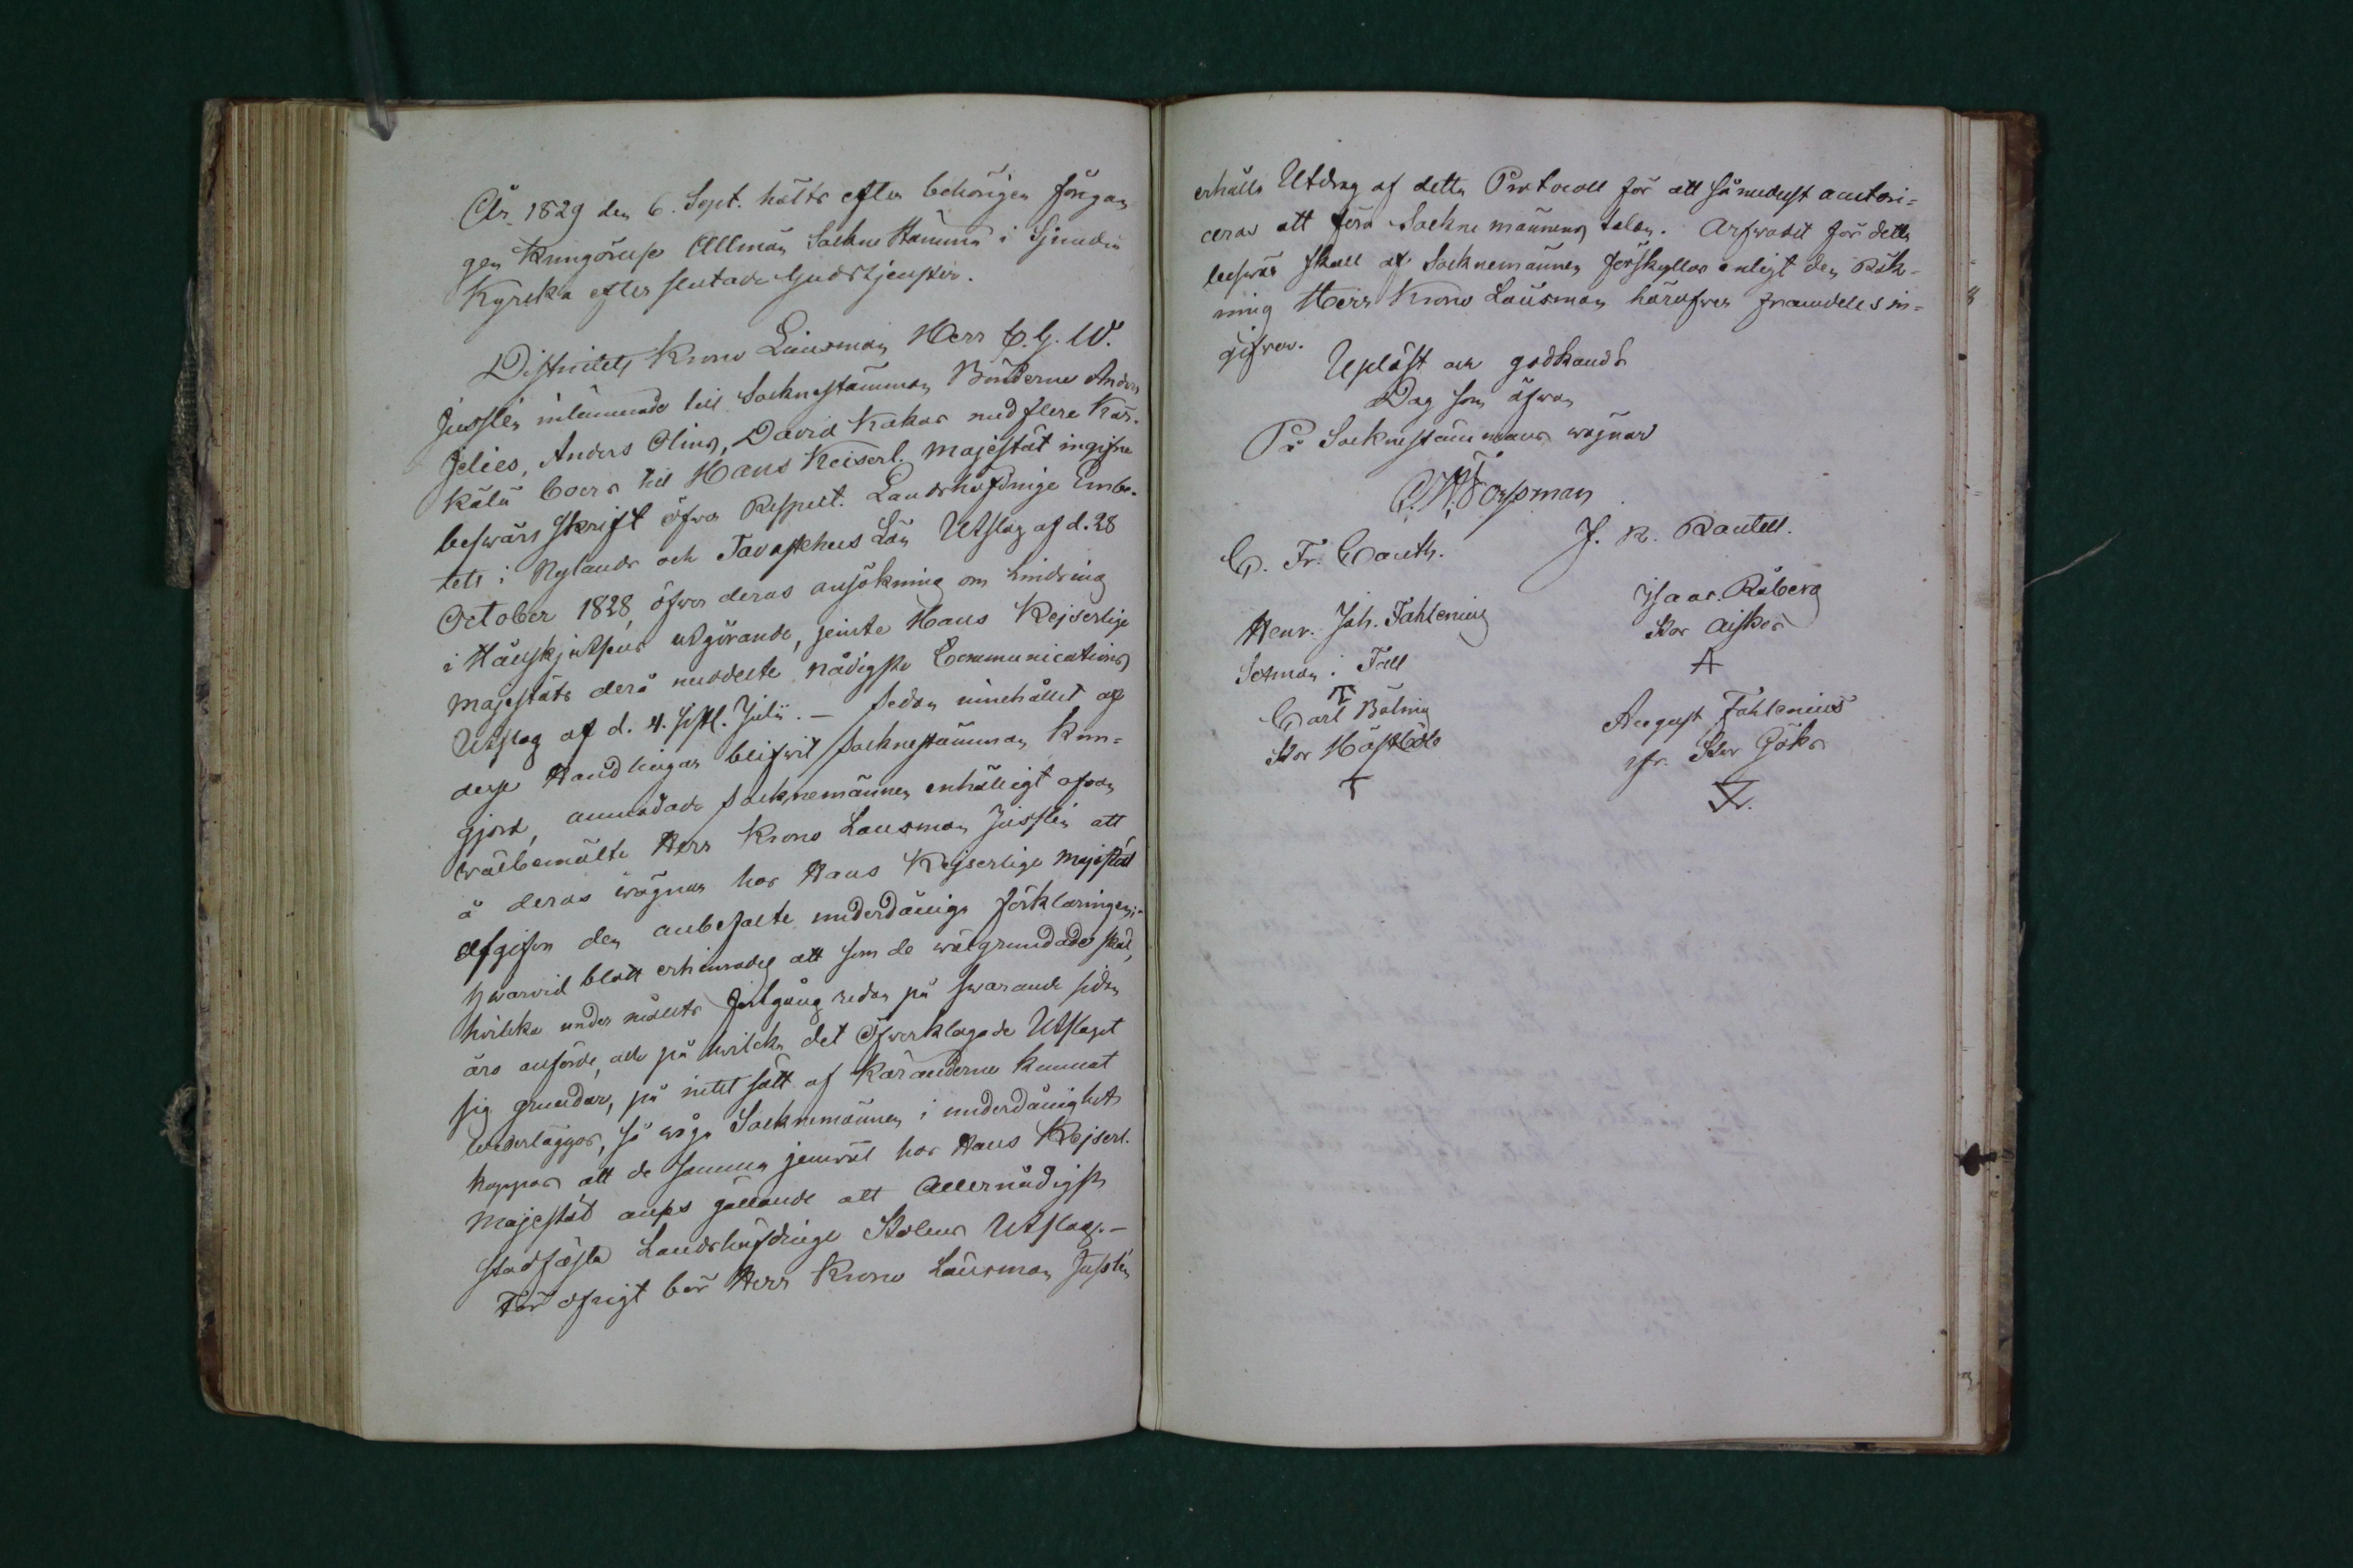 År 1829 den 6. Sept. hölts efter behörigen föregån-
gen Kungörelse Allmän SockneStämma i Sjundeå
Kyrcka efter slutad Gudstjenster.
Districtets Krono Länsman Herr C. G. W.
Jusslén inlämnade till Socknestämman Bönderne Anders
Jelies, Anders Olins, David Kakas med flere Kär-
kälä boers till Hans Keiserl. Majestät ingifne
beswärs Skrift öfver Respect. Landshöfdinge Embe-
tets i Nylands och Tavastehus Län Utslag af d. 28
October 1828, öfver deras ansökning om Lindring
i Hållskjutsens utgörande, jemte Hans Kejserlige
Majestäts derå meddelte nådigste Communications
Utslag af d. 4. Julii. — Sedan innehållet af
desse Handlingar blifvit Socknestämman Kun-
gjord, anmodade Socknemännen enhälligt ofvan
wälbemälte Herr Krono Länsman Jusslén att
å deras wägnar hos Hans Kejserlige Majestät
afgifva den anbefalte underdåniga förklaringen;
hwarvid blott erhinrades att som de wälgrundade skäl,
hvilka under målets fortgång redan på swarande sidan
äro anförde, och på hwilcka det Öfverklagade Utslaget
sig grundar, på intet sätt af Käranderne kunnat
wederläggas, så wåga Socknemännen i underdånighet
hoppas att de samma jemwäl hos Hans Kejserl.
Majestät anses gällande att Allernådigst
stadfästa Landshöfdinge Utslag. —
För öfrigt bör Herr Krono Länsman Jusslén
erhålla Utdrag af detta Protocoll för att såmedelst autori-
ceras att föra Sockne männens talan. Arfvodet för detta
beswär skall af Socknemännen förskyllas enligt den Räk-
ning Herr Krono Länsman häröfver framdeles in-
gifver.
Upläst och godkändt
Dag som ofvan
På Socknestämmans wägnar
J. R. Rantell.
C. Fr. Conth.
Henr. Joh. Fahlenius
Isaac Råberg
Stor Aiskos
A
Sexman i Fall
T
Carl Böling
Stor Hästböle
T
August Fahlenius
fr. Stor Göks
F.